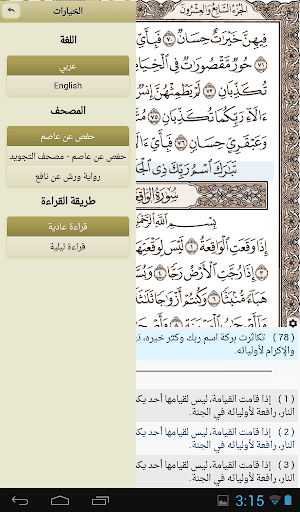 الخيارات
اللغة
عربي
English
المصحف
حفص عن عاصم
حفص عن عاصم - مصحف التجويد
رواية ورش عن نافع
طريقة القراءة
قراءة عادية
قراءة ليلية
الجزء السابع والعشرون
فِيهِنَّ خَيْرَاتٌ حِسَانٌ ٧٠ فَبِأَيِّ
٧١ حُورٌ مَقْصُورَاتٌ فِي الْخِيَامِ
٧٣ لَمْ يَطْمِثْهُنَّ إِنْسٌ
ءَالَاءِ رَبِّكُمَا تُكَذِّبَانِ
وَعَبْقَرِيٍّ حِسَانٍ ٧٦ فَبِأَيِّ
تَبَارَكَ اسْمُ رَبِّكَ ذِي الْجَلَالِ
سُورَةُ الْوَاقِعَةِ
بِسْمِ اللَّهِ الرَّحْمَٰنِ
إِذَا وَقَعَتِ الْوَاقِعَةُ ١ لَيْسَ لِوَقْعَتِهَا
٣ إِذَا رُجَّتِ الْأَرْضُ رَجًّا
هَبَاءً مُنْبَثًّا ٦ وَكُنْتُمْ أَزْوَاجًا ثَلَاثَةً
( 78 ) تكاثرت بركة اسم ربك وكثر خيره،
والإكرام لأوليائه.
( 1 ) إذا قامت القيامة، ليس لقيامها أحد
النار، رافعة لأوليائه في الجنة.
( 2 ) إذا قامت القيامة، ليس لقيامها أحد
النار، رافعة لأوليائه في الجنة.
( 3 ) إذا قامت القيامة، ليس لقيامها أحد
النار، رافعة لأوليائه في الجنة.
3:15